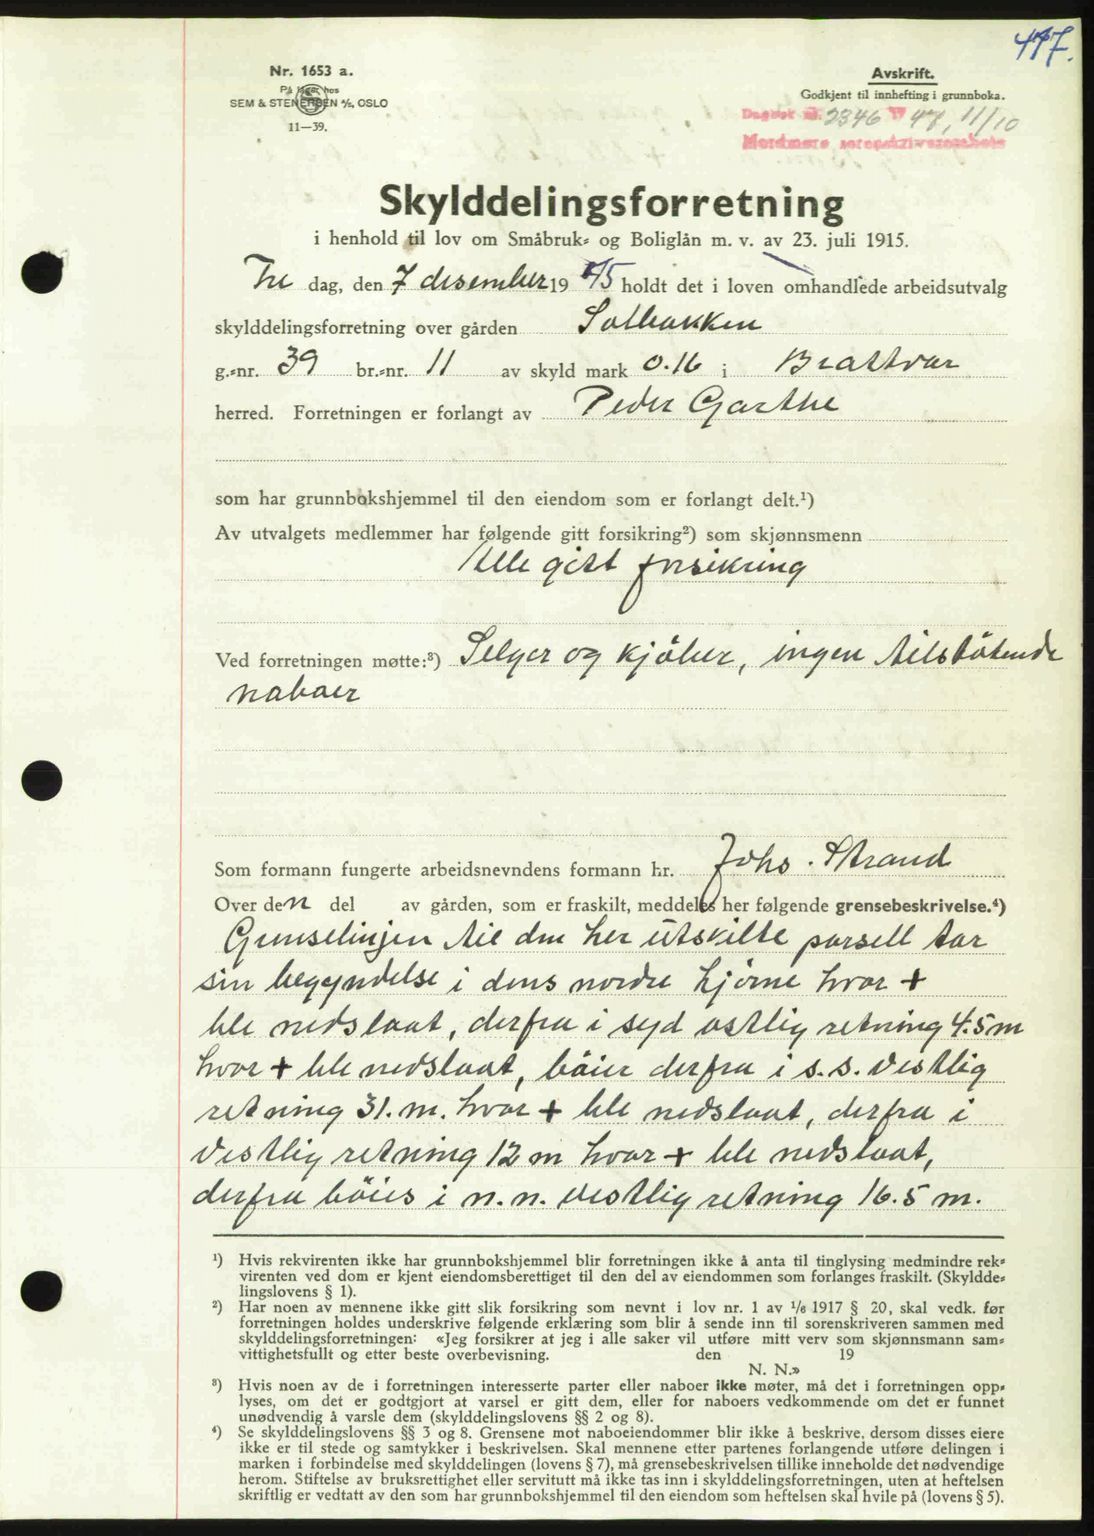 477.
Nr. 1653 a.
På lager hos
SEM & STENERSEN A/S, OSLO
11—39.
Avskrift.
Godkjent til innhefting i grunnboka.
Dagbok nr. 2346 19 47, 11/10
Nordmøre sorenskriverembete
Skylddelingsforretning
i henhold til lov om Småbruk- og Boliglån m. v. av 23. juli 1915.
Fre dag, den 7 desember 19 45 holdt det i loven omhandlede arbeidsutvalg
skylddelingsforretning over gården Solbakken
g.-nr. 39 br.-nr. 11 av skyld mark 0.16 i Brattvær
herred. Forretningen er forlangt av Peder Garthe
som har grunnbokshjemmel til den eiendom som er forlangt delt.¹)
Av utvalgets medlemmer har følgende gitt forsikring²) som skjønnsmenn
Alle gitt forsikring
Ved forretningen møtte:³) Selger og kjöber, ingen tilstötende
naboer
Som formann fungerte arbeidsnevndens formann hr. Johs. Strand
Over den del av gården, som er fraskilt, meddeles her følgende grensebeskrivelse.⁴)
Grenselinjen til den her utskilte parsell tar
sin begyndelse i dens nordre hjörne hvor +
ble nedslaat, derfra i syd ostlig retning 4.5 m
hvor + ble nedslaat, böier derfra i s.s. vestlig
retning 31. m. hvor + ble nedslaat, derfra i
vestlig retning 12 m hvor + ble nedslaat,
derfra böies i n.n. vestlig retning 16.5 m.
¹) Hvis rekvirenten ikke har grunnbokshjemmel blir forretningen ikke å anta til tinglysing medmindre rek-
virenten ved dom er kjent eiendomsberettiget til den del av eiendommen som forlanges fraskilt. (Skyldde-
lingslovens § 1).
²) Har noen av mennene ikke gitt slik forsikring som nevnt i lov nr. 1 av 1/6 1917 § 20, skal vedk. før
forretningen holdes underskrive følgende erklæring som blir å sende inn til sorenskriveren sammen med
skylddelingsforretningen: «Jeg forsikrer at jeg i alle saker vil utføre mitt verv som skjønnsmann sam-
vittighetsfullt og etter beste overbevisning. den 19
N. N.»
³) Hvis noen av de i forretningen interesserte parter eller naboer ikke møter, må det i forretningen opp-
lyses, om det er godtgjort at varsel er gitt dem, eller for naboers vedkommende om det er funnet
unødvendig å varsle dem (skylddelingslovens §§ 2 og 8).
⁴) Se skylddelingslovens §§ 3 og 8. Grensene mot naboeiendommer blir ikke å beskrive, dersom disses eiere
ikke er til stede og samtykker i beskrivelsen. Skal mennene etter partenes forlangende utføre delingen i
marken i forbindelse med skylddelingen (lovens § 7), må grensebeskrivelsen tillike inneholde det nødvendige
herom. Stiftelse av bruksrettighet eller servitutt må ikke tas inn i skylddelingsforretningen, uten at heftelsen
skriftlig er vedtatt av den som har grunnbokshjemmel til den eiendom som heftelsen skal hvile på (lovens § 5).